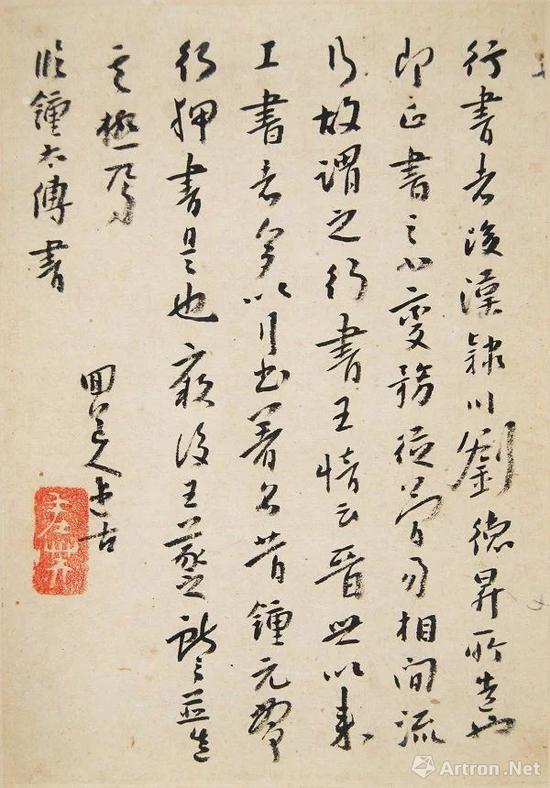 行書者後漢潁川劉德昇所造也
即正書之小變務從簡易相間流
行故謂之行書王愔云晉世以來
工書者多以行書著名昔鍾元常
行押書是也厥後王羲之獻之並造
其極焉
臨鍾太傅書
八大山人
雅昌艺术网
Artron.Net